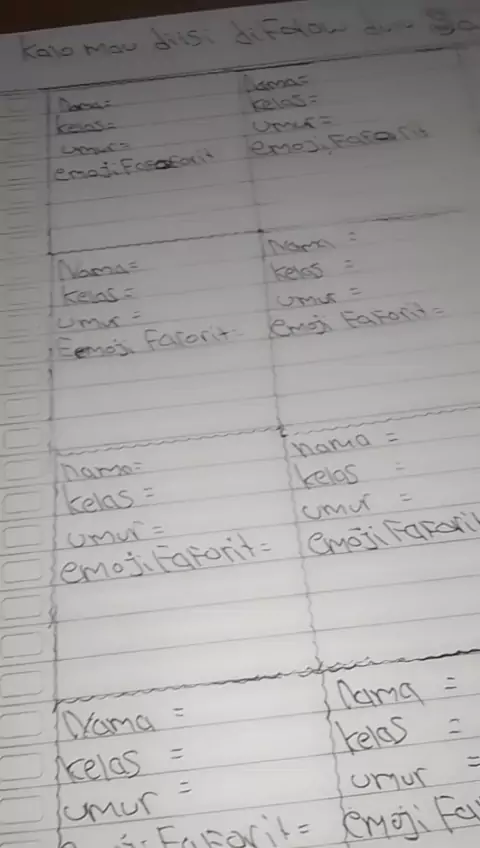 Kalo mau diisi difolow dulu
Nama=
kelas=
umur=
emoji Faforit
Nama=
kelas=
umur=
emoji Faforit
Nama=
kelas=
umur=
Eemoji Faforit=
Nama =
kelas =
umur =
emoji Faforit=
nama=
kelas=
umur=
emoji Faforit=
nama =
kelas =
umur =
emoji Faforit
Nama =
kelas =
umur =
Faforit=
Nama =
kelas =
umur =
emoji Fa